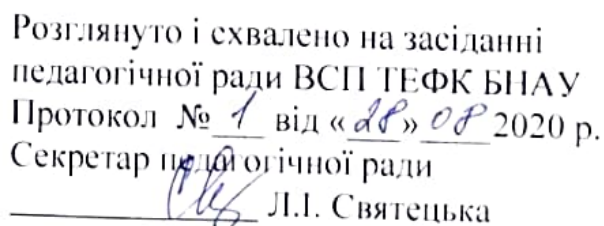 Розглянуто і схвалено на засіданні
педагогічної ради ВСП ТЕФК БНАУ
Протокол № 1 від «28» 08 2020 р.
Секретар педагогічної ради
Л.І. Святецька